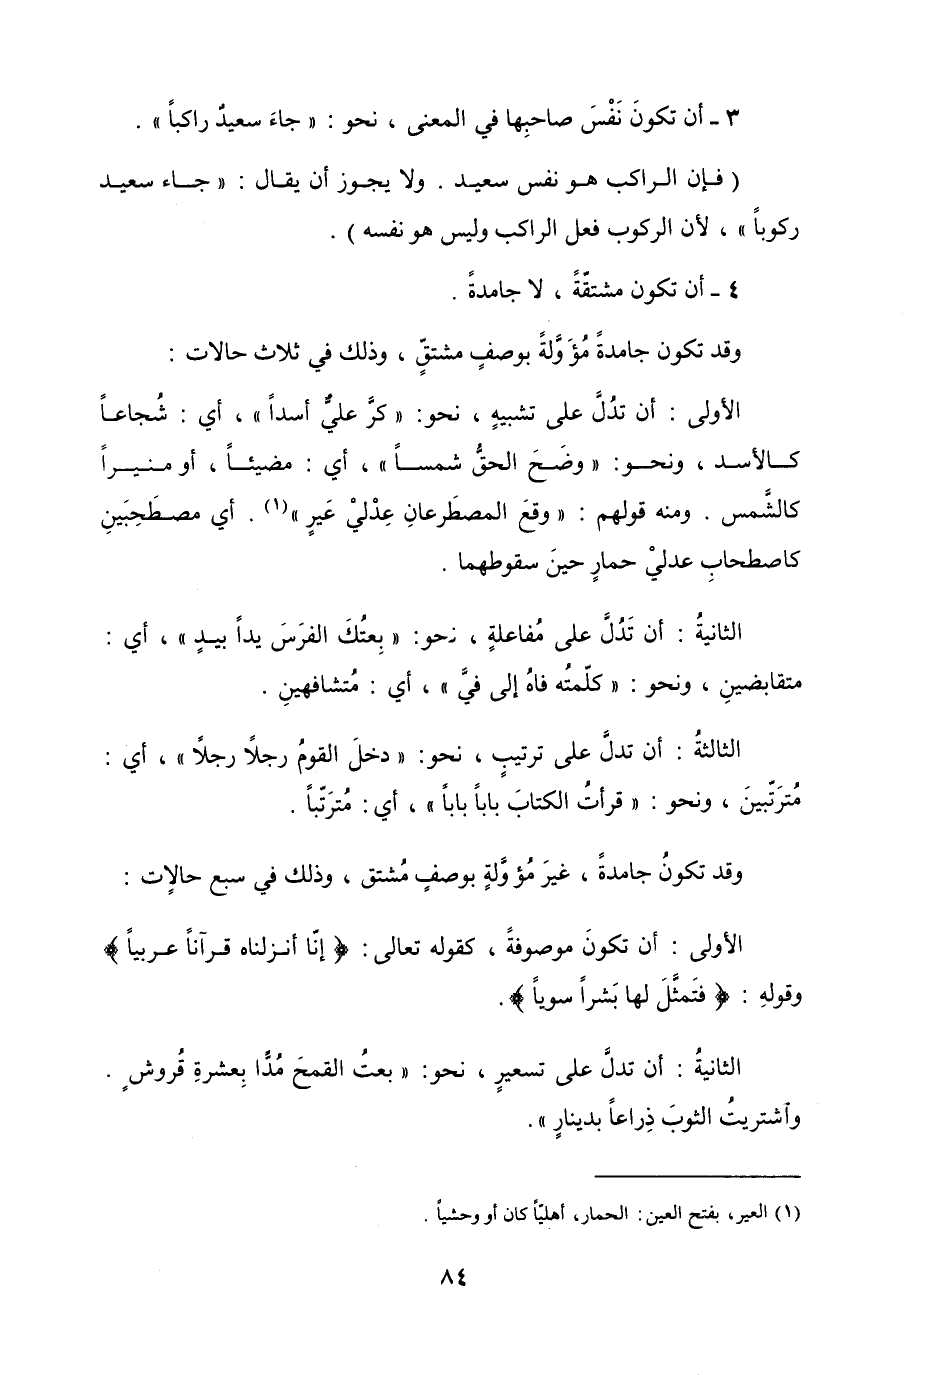 ٣ ـ أن تكونَ نَفْسَ صاحبِها في المعنى ، نحو : « جاءَ سعيدٌ راكباً » .
( فإن الراكب هو نفس سعيد . ولا يجوز أن يقال : « جاء سعيد
ركوباً » ، لأن الركوب فعل الراكب وليس هو نفسه ) .
٤ ـ أن تكون مشتقّةً ، لا جامدةً .
وقد تكون جامدةً مُؤَوَّلةً بوصفٍ مشتقٍّ ، وذلك في ثلاث حالات :
الأولى : أن تدُلَّ على تشبيهٍ ، نحو: « كرَّ عليٌّ أسداً » ، أي : شُجاعاً
كالأسد ، ونحو: « وضَحَ الحقُّ شمساً » ، أي : مضيئاً ، أو منيراً
كالشَّمس . ومنه قولهم : « وقعَ المصطَرعانِ عِدْليْ عَيرٍ »(١) . أي مصطَحِبَينِ
كاصطحابِ عدليْ حمارٍ حينَ سقوطهما .
الثانيةُ : أن تَدُلَّ على مُفاعلةٍ ، نحو: « بِعتُكَ الفرَسَ يداً بيدٍ » ، أي :
متقابضينِ ، ونحو : « كلّمتُه فاهُ إلى فيَّ » ، أي : مُتشافهينِ .
الثالثةُ : أن تدلَّ على ترتيبٍ ، نحو: « دخلَ القومُ رجلًا رجلًا » ، أي :
مُترَتّبينَ ، ونحو : « قرأتُ الكتابَ باباً باباً » ، أي: مُترَتّباً .
وقد تكونُ جامدةً ، غيرَ مُؤوَّلةٍ بوصفٍ مُشتق ، وذلك في سبع حالاتٍ :
الأولى : أن تكونَ موصوفةً ، كقوله تعالى : ﴿ إنّا أنزلناه قرآناً عربياً ﴾
وقولهِ : ﴿ فتَمثَّلَ لها بَشراً سوياً ﴾ .
الثانيةُ : أن تدلَّ على تسعيرٍ ، نحو: « بعتُ القمحَ مُدًّا بِعشرةِ قُروشٍ .
وآشتريتُ الثوبَ ذِراعاً بدينارٍ » .
(١) العير، بفتح العين : الحمار، أهليّاً كان أو وحشياً .
٨٤